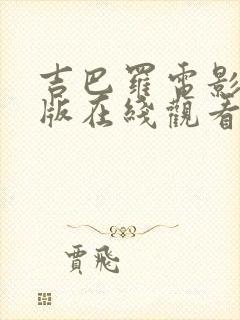 吉巴罗電影
版在綫觀看
賈飛